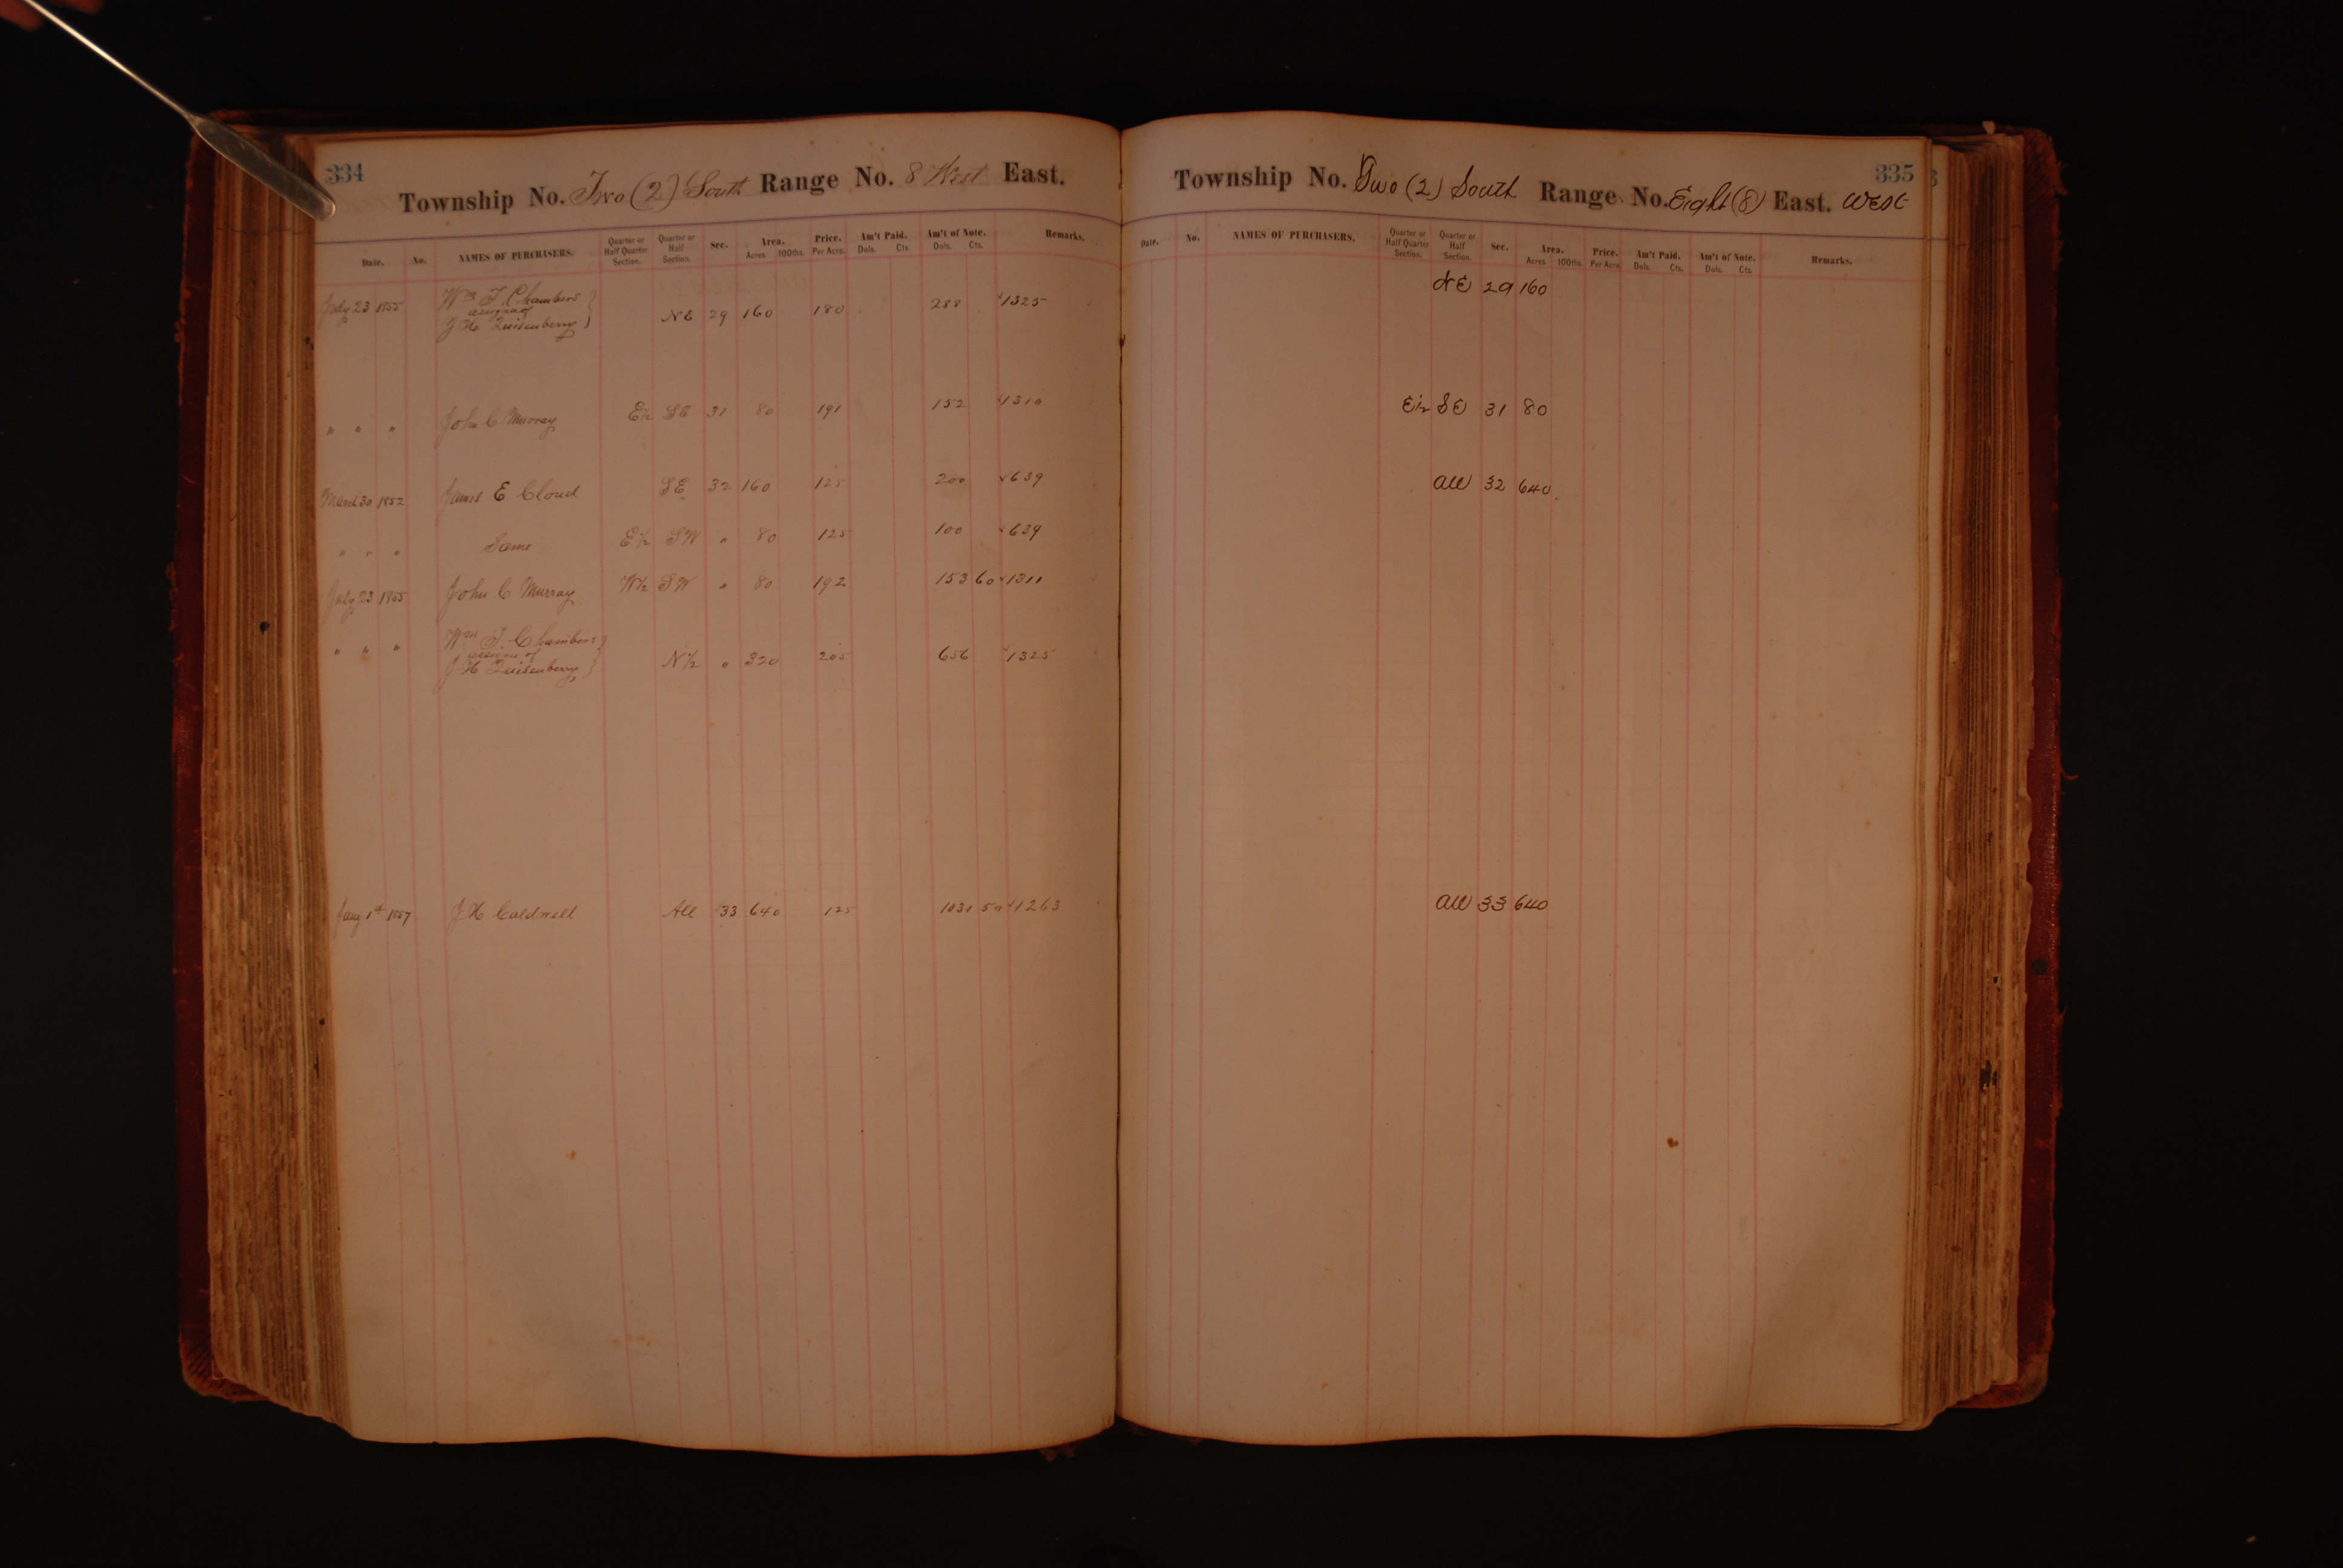 334
Township No. Two (2) South Range No. 8 West East.
Date. No. NAMES OF PURCHASERS. Quarter or Half Quarter Section. Quarter or Half Section. Sec. Area. Acres 100ths. Price. Per Acre. Am't Paid. Dols. Cts. Am't of Note. Dols. Cts. Remarks.
July 23 1855 Wm T. Chambers
assignee of
J H Quisenberry NE 29 160 180 288 1325
" " " John C Murray E½ SE 31 80 191 152 1310
March 30 1852 James E Cloud SE 32 160 125 200 639
" " " Same E½ SW " 80 125 100 639
July 23 1855 John C Murray W½ SW " 80 192 153 60 1311
" " " Wm T. Chambers
assignee of
J H Quisenberry N½ " 320 205 656 1325
Jany 1st 1857 J H Caldwell All 33 640 125 1031 50 1263
335
Township No. Two (2) South Range No. Eight (8) East. West
Date. No. NAMES OF PURCHASERS. Quarter or Half Quarter Section. Quarter or Half Section. Sec. Area. Acres 100ths. Price. Per Acre Am't Paid. Dols. Cts. Am't of Note. Dols. Cts. Remarks.
NE 29 160
E½ SE 31 80
All 32 640
All 33 640